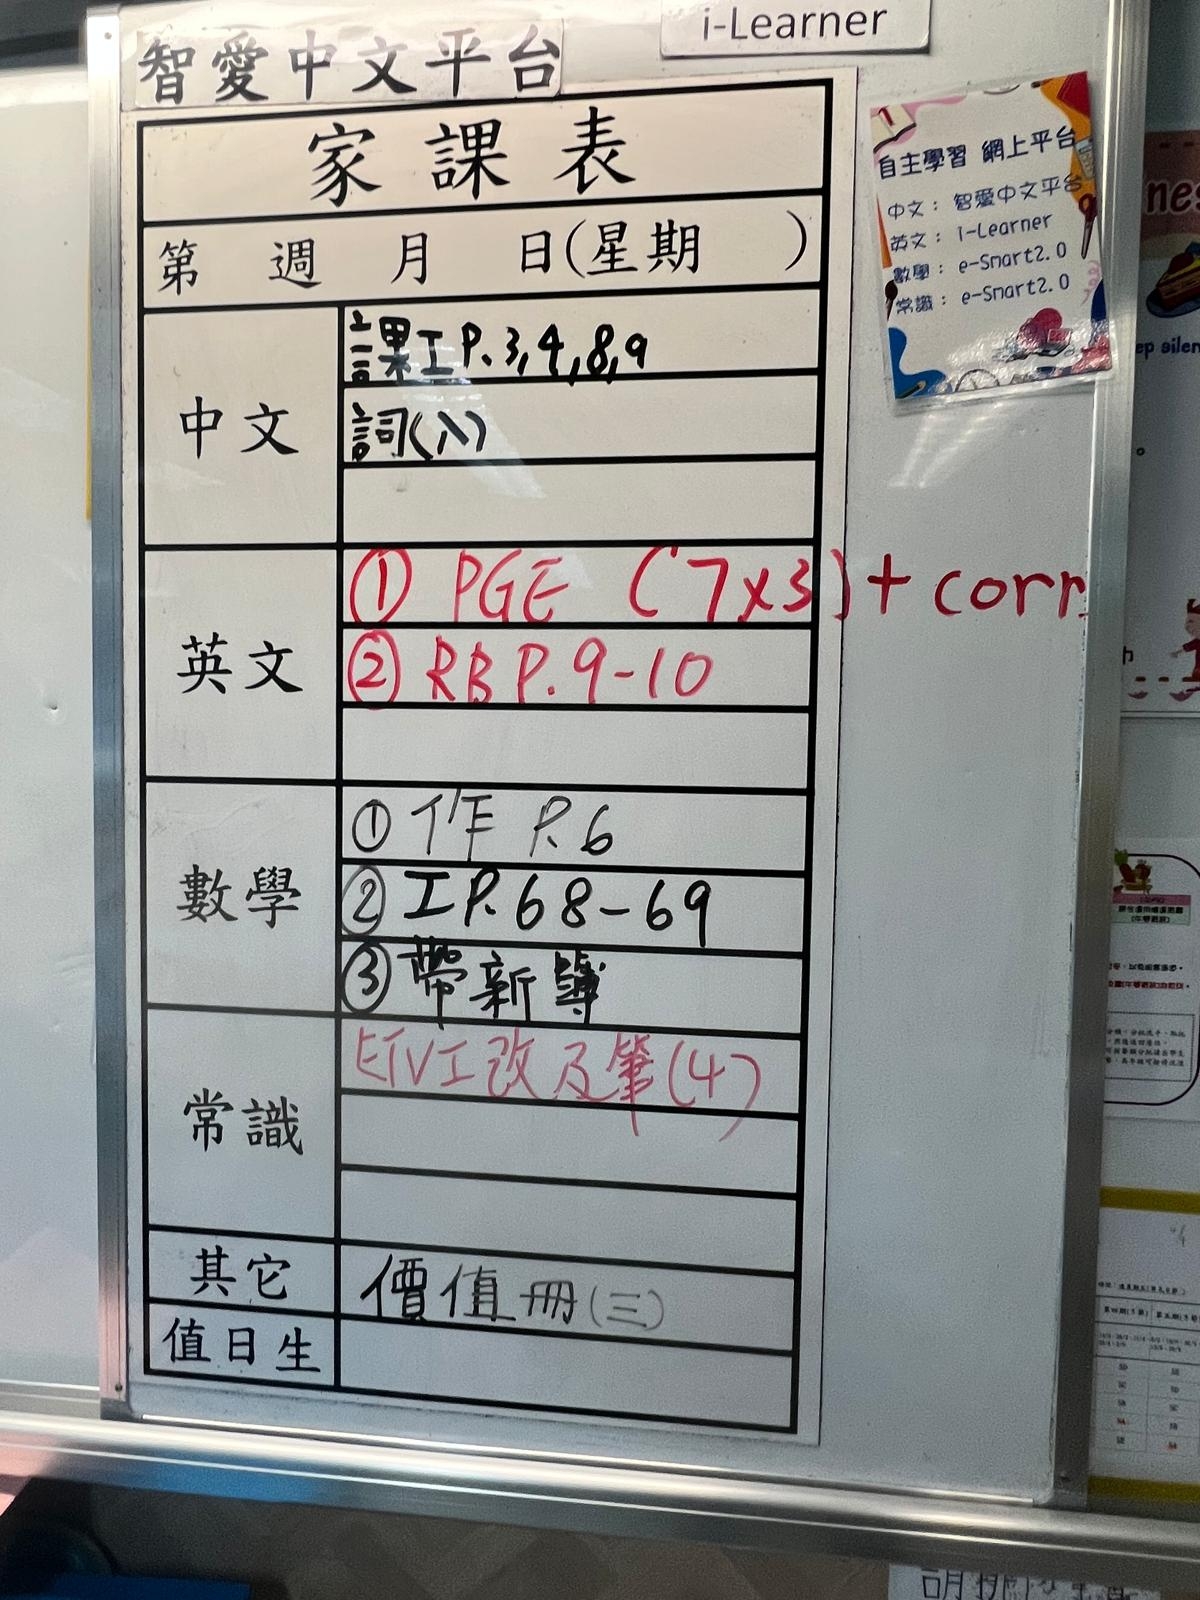 智愛中文平台
i-Learner
家課表
第 週 月 日(星期 )
中文
課工P.3,4,8,9
詞(八)
英文
① PGE (7x3) + corr
② RB P.9-10
數學
① 作 P.6
② 工P.68-69
③ 帶新簿
常識
ETV工改及筆(4)
其它
價值冊(三)
值日生
自主學習 網上平台
中文：智愛中文平台
英文：i-Learner
數學：e-Smart2.0
常識：e-Smart2.0
nes
ep silen